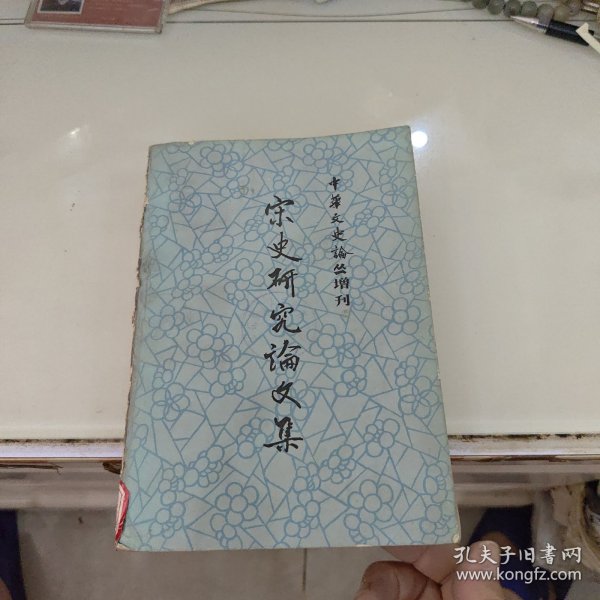 中華文史論丛增刊
宋史研究論文集
孔夫子旧書网
www.kongfz.com